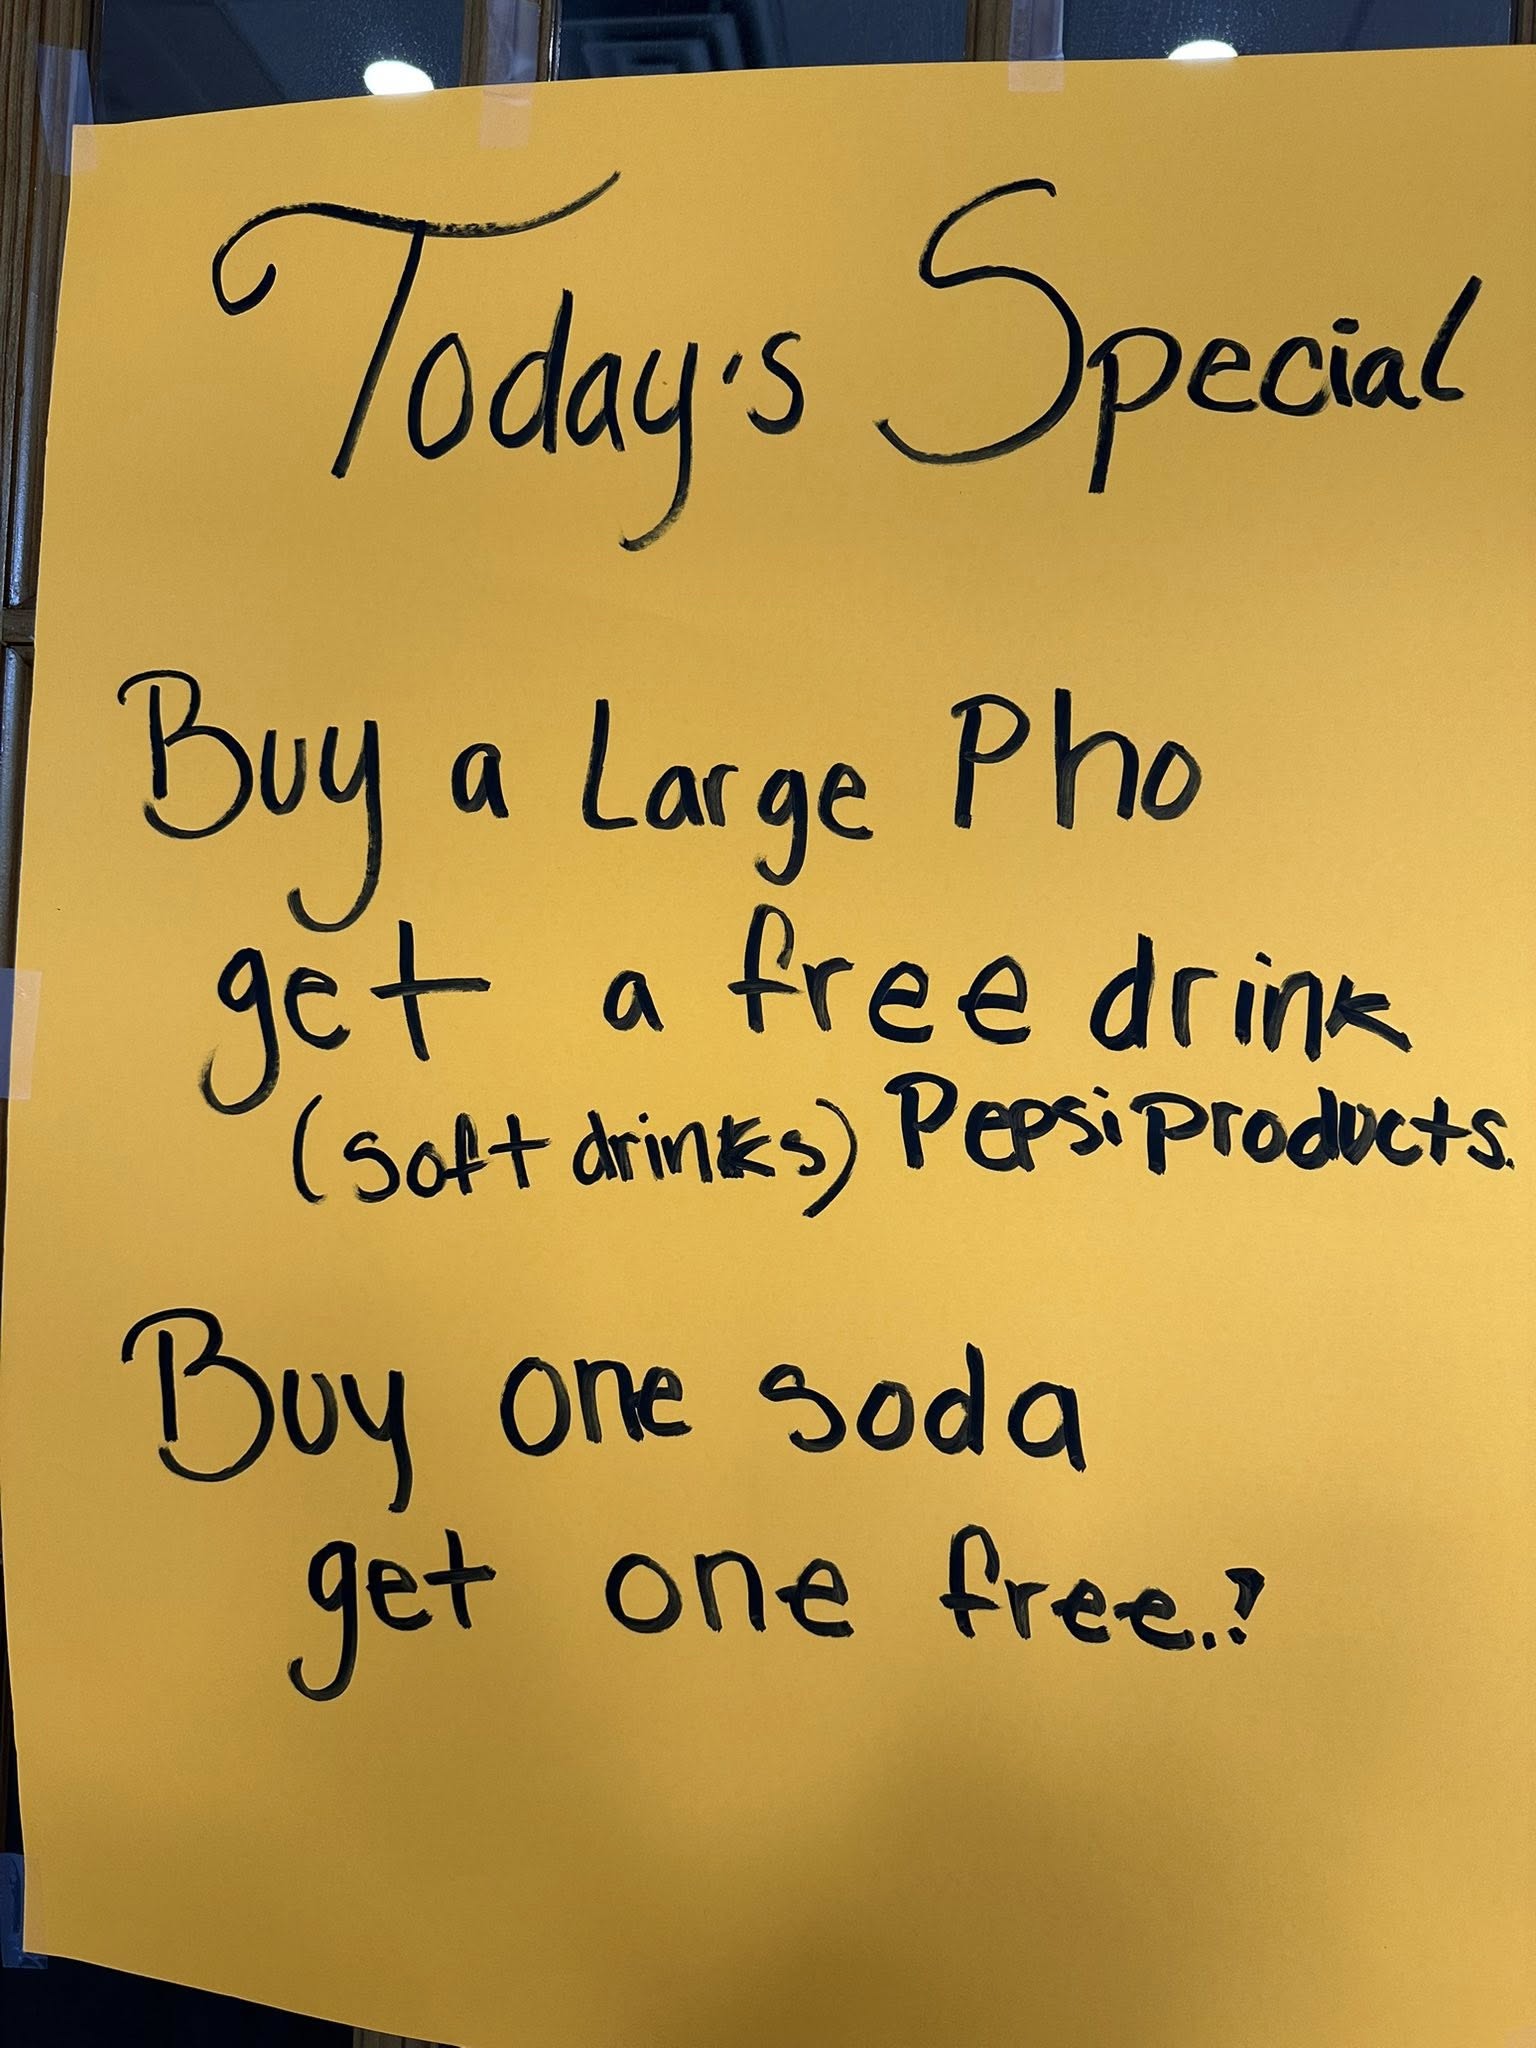 Today's Special
Buy a Large Pho
get a free drink
(soft drinks) Pepsi products.
Buy one soda
get one free.?